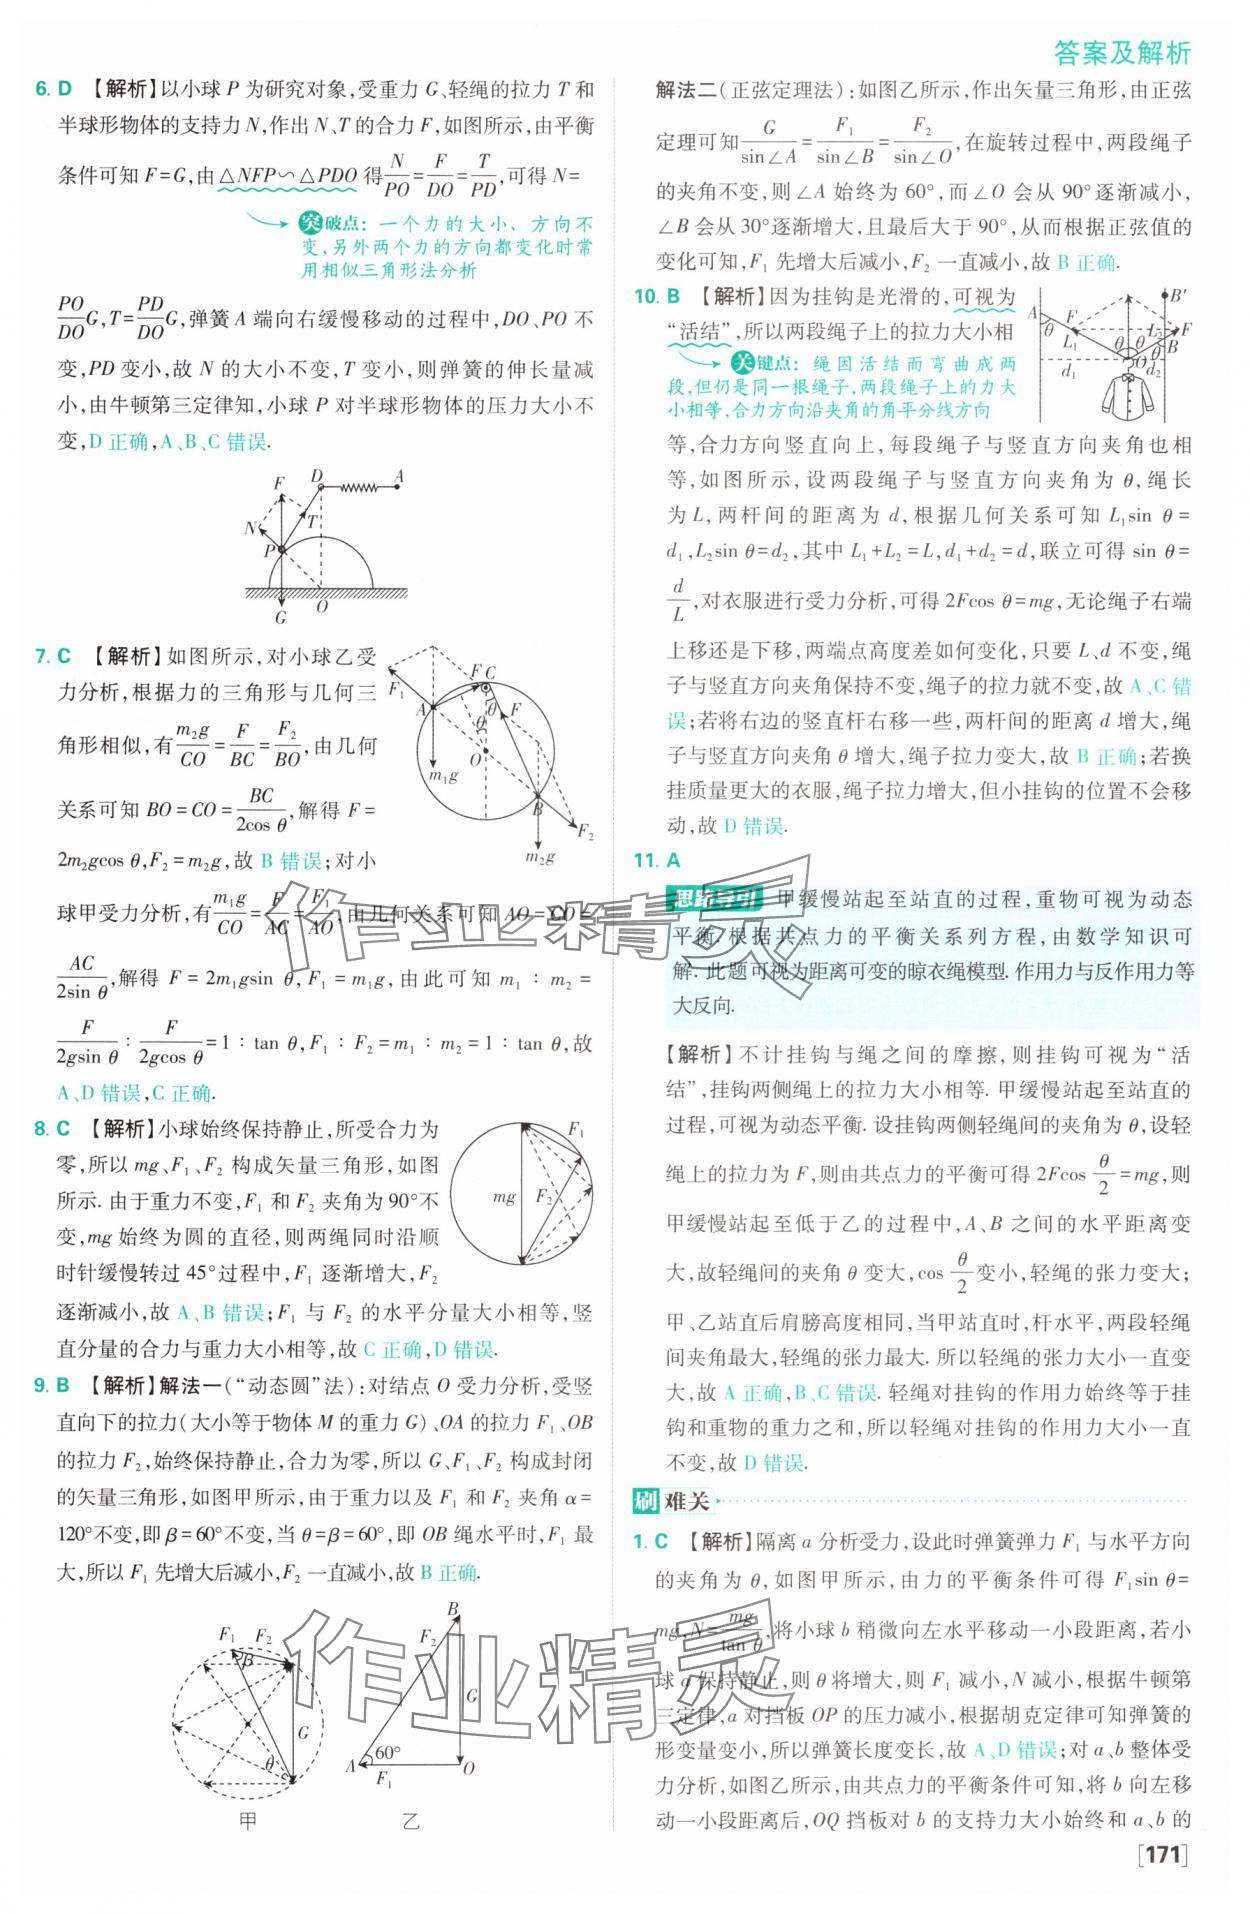 答案及解析
6. D 【解析】以小球 P 为研究对象,受重力 G、轻绳的拉力 T 和
半球形物体的支持力 N,作出 N、T 的合力 F,如图所示,由平衡
条件可知 F=G,由 △NFP∽△PDO 得 N/PO = F/DO = T/PD,可得 N=
突破点:一个力的大小、方向不
变,另外两个力的方向都变化时常
用相似三角形法分析
PO/DO G,T= PD/DO G,弹簧 A 端向右缓慢移动的过程中,DO、PO 不
变,PD 变小,故 N 的大小不变,T 变小,则弹簧的伸长量减
小,由牛顿第三定律知,小球 P 对半球形物体的压力大小不
变,D 正确,A、B、C 错误.
D A
F
N T
P
O
G
7. C 【解析】如图所示,对小球乙受
力分析,根据力的三角形与几何三
角形相似,有 m₂g/CO = F/BC = F₂/BO,由几何
关系可知 BO=CO= BC/2cos θ,解得 F=
2m₂gcos θ,F₂=m₂g,故 B 错误;对小
球甲受力分析,有 m₁g/CO = F/AC = F₁/AO,由几何关系可知 AO=CO=
AC/2sin θ,解得 F=2m₁gsin θ,F₁=m₁g,由此可知 m₁∶m₂=
F/2gsin θ ∶ F/2gcos θ =1∶tan θ,F₁∶F₂=m₁∶m₂=1∶tan θ,故
A、D 错误,C 正确.
F₁ F C
A θ θ F
O
m₁g
B
F₂
m₂g
8. C 【解析】小球始终保持静止,所受合力为
零,所以 mg、F₁、F₂ 构成矢量三角形,如图
所示. 由于重力不变,F₁ 和 F₂ 夹角为 90°不
变,mg 始终为圆的直径,则两绳同时沿顺
时针缓慢转过 45°过程中,F₁ 逐渐增大,F₂
逐渐减小,故 A、B 错误;F₁ 与 F₂ 的水平分量大小相等,竖
直分量的合力与重力大小相等,故 C 正确,D 错误.
F₁
mg F₂
9. B 【解析】解法一(“动态圆”法):对结点 O 受力分析,受竖
直向下的拉力(大小等于物体 M 的重力 G)、OA 的拉力 F₁、OB
的拉力 F₂,始终保持静止,合力为零,所以 G、F₁、F₂ 构成封闭
的矢量三角形,如图甲所示,由于重力以及 F₁ 和 F₂ 夹角 α=
120°不变,即 β=60°不变,当 θ=β=60°,即 OB 绳水平时,F₁ 最
大,所以 F₁ 先增大后减小,F₂ 一直减小,故 B 正确.
F₁ F₂
β
G
θ
甲
B
F₂
G
60°
A F₁ O
乙
解法二(正弦定理法):如图乙所示,作出矢量三角形,由正弦
定理可知 G/sin∠A = F₁/sin∠B = F₂/sin∠O,在旋转过程中,两段绳子
的夹角不变,则 ∠A 始终为 60°,而 ∠O 会从 90°逐渐减小,
∠B 会从 30°逐渐增大,且最后大于 90°,从而根据正弦值的
变化可知,F₁ 先增大后减小,F₂ 一直减小,故 B 正确.
10. B 【解析】因为挂钩是光滑的,可视为
“活结”,所以两段绳子上的拉力大小相
关键点:绳因活结而弯曲成两
段,但仍是同一根绳子,两段绳子上的力大
小相等,合力方向沿夹角的角平分线方向
等,合力方向竖直向上,每段绳子与竖直方向夹角也相
等,如图所示,设两段绳子与竖直方向夹角为 θ,绳长
为 L,两杆间的距离为 d,根据几何关系可知 L₁sin θ=
d₁,L₂sin θ=d₂,其中 L₁+L₂=L,d₁+d₂=d,联立可得 sin θ=
d/L,对衣服进行受力分析,可得 2Fcos θ=mg,无论绳子右端
上移还是下移,两端点高度差如何变化,只要 L、d 不变,绳
子与竖直方向夹角保持不变,绳子的拉力就不变,故 A、C 错
误;若将右边的竖直杆右移一些,两杆间的距离 d 增大,绳
子与竖直方向夹角 θ 增大,绳子拉力变大,故 B 正确;若换
挂质量更大的衣服,绳子拉力增大,但小挂钩的位置不会移
动,故 D 错误.
B′
A θ F F
L₁ θ θ L₂ B
O
d₁ d₂
11. A
思路导引 甲缓慢站起至站直的过程,重物可视为动态
平衡. 根据共点力的平衡关系列方程,由数学知识可
解. 此题可视为距离可变的晾衣绳模型. 作用力与反作用力等
大反向.
【解析】不计挂钩与绳之间的摩擦,则挂钩可视为“活
结”,挂钩两侧绳上的拉力大小相等. 甲缓慢站起至站直的
过程,可视为动态平衡. 设挂钩两侧轻绳间的夹角为 θ,设轻
绳上的拉力为 F,则由共点力的平衡可得 2Fcos θ/2 =mg,则
甲缓慢站起至低于乙的过程中,A、B 之间的水平距离变
大,故轻绳间的夹角 θ 变大,cos θ/2 变小,轻绳的张力变大;
甲、乙站直后肩膀高度相同,当甲站直时,杆水平,两段轻绳
间夹角最大,轻绳的张力最大. 所以轻绳张力大小一直变
大,故 A 正确,B、C 错误. 轻绳对挂钩的作用力始终等于挂
钩和重物的重力之和,所以轻绳对挂钩的作用力大小一直
不变,故 D 错误.
刷难关
1. C 【解析】隔离 a 分析受力,设此时弹簧弹力 F₁ 与水平方向
的夹角为 θ,如图甲所示,由力的平衡条件可得 F₁sin θ=
mg,N= mg/tan θ,将小球 b 稍微向左水平移动一小段距离,若小
球 a 保持静止,则 θ 将增大,则 F₁ 减小,N 减小,根据牛顿第
三定律,a 对挡板 OP 的压力减小,根据胡克定律可知弹簧的
形变量变小,所以弹簧长度变长,故 A、D 错误;对 a、b 整体受
力分析,如图乙所示,由共点力的平衡条件可知,将 b 向左移
动一小段距离后,OQ 挡板对 b 的支持力大小始终和 a、b 的
[171]
作业精灵
作业精灵